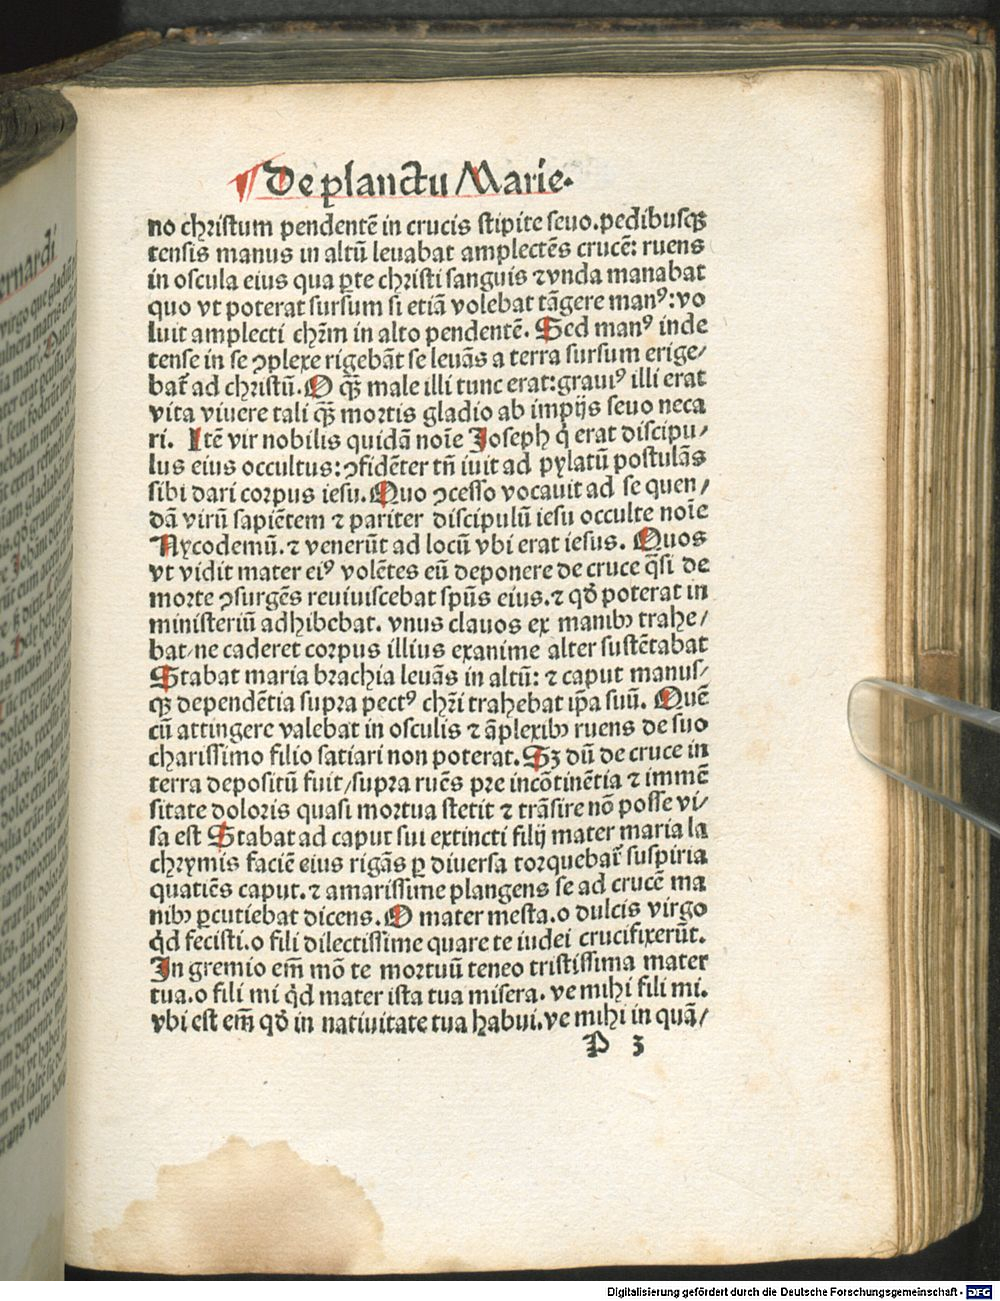 ¶ De planctu Marie.
no christum pendentē in crucis stipite seuo. pedibusqꝫ
tensis manus in altū leuabat amplectēs crucē: ruens
in oscula eius qua ꝑte christi sanguis ⁊ vnda manabat
quo vt poterat sursum si etiā volebat tāgere manꝰ: vo
luit amplecti chr̄m in alto pendentē. Sed manꝰ inde
tense in se ꝯplexe rigebāt se leuās a terra sursum erige/
bat̄ ad christū. O qꝫ̄ male illi tunc erat: grauiꝰ illi erat
vita viuere tali qꝫ̄ mortis gladio ab impijs seuo neca
ri. Itē vir nobilis quidā noīe Joseph q̇ erat discipu/
lus eius occultus: ꝯfidēter tn̄ iuit ad pylatū postulās
sibi dari corpus iesu. Quo ꝯcesso vocauit ad se quen/
dā virū sapiētem ⁊ pariter discipulū iesu occulte noīe
Nycodemū. ⁊ venerūt ad locū vbi erat iesus. Quos
vt vidit mater eiꝰ volētes eū deponere de cruce q̄si de
morte ꝯsurgēs reuiuiscebat sp̄us eius. ⁊ qḋ poterat in
ministeriū adhibebat. vnus clauos ex manibꝫ trahe/
bat/ne caderet corpus illius exanime alter sustētabat
Stabat maria brachia leuās in altū: ⁊ caput manus/
qꝫ dependētia supra pectꝰ chr̄i trahebat ip̄a suū. Quē
cū attingere valebat in osculis ⁊ āplexibꝫ ruens de suo
charissimo filio satiari non poterat. Sꝫ dū de cruce in
terra depositū fuit/supra ruēs pre incōtinētia ⁊ immē
sitate doloris quasi mortua stetit ⁊ trāsire nō posse vi/
sa est Stabat ad caput sui extincti filij mater maria la
chrymis faciē eius rigās ꝑ diuersa torquebat̄ suspiria
quatiēs caput. ⁊ amarissime plangens se ad crucē ma
nibꝫ ꝑcutiebat dicens. O mater mesta. o dulcis virgo
q̇d fecisti. o fili dilectissime quare te iudei crucifixerūt.
In gremio em̄ mō te mortuū teneo tristissima mater
tua. o fili mi q̇d mater ista tua misera. ve mihi fili mi.
vbi est em̄ qḋ in natiuitate tua habui. ve mihi in quā/
P 3
ernardi
Digitalisierung gefördert durch die Deutsche Forschungsgemeinschaft - DFG